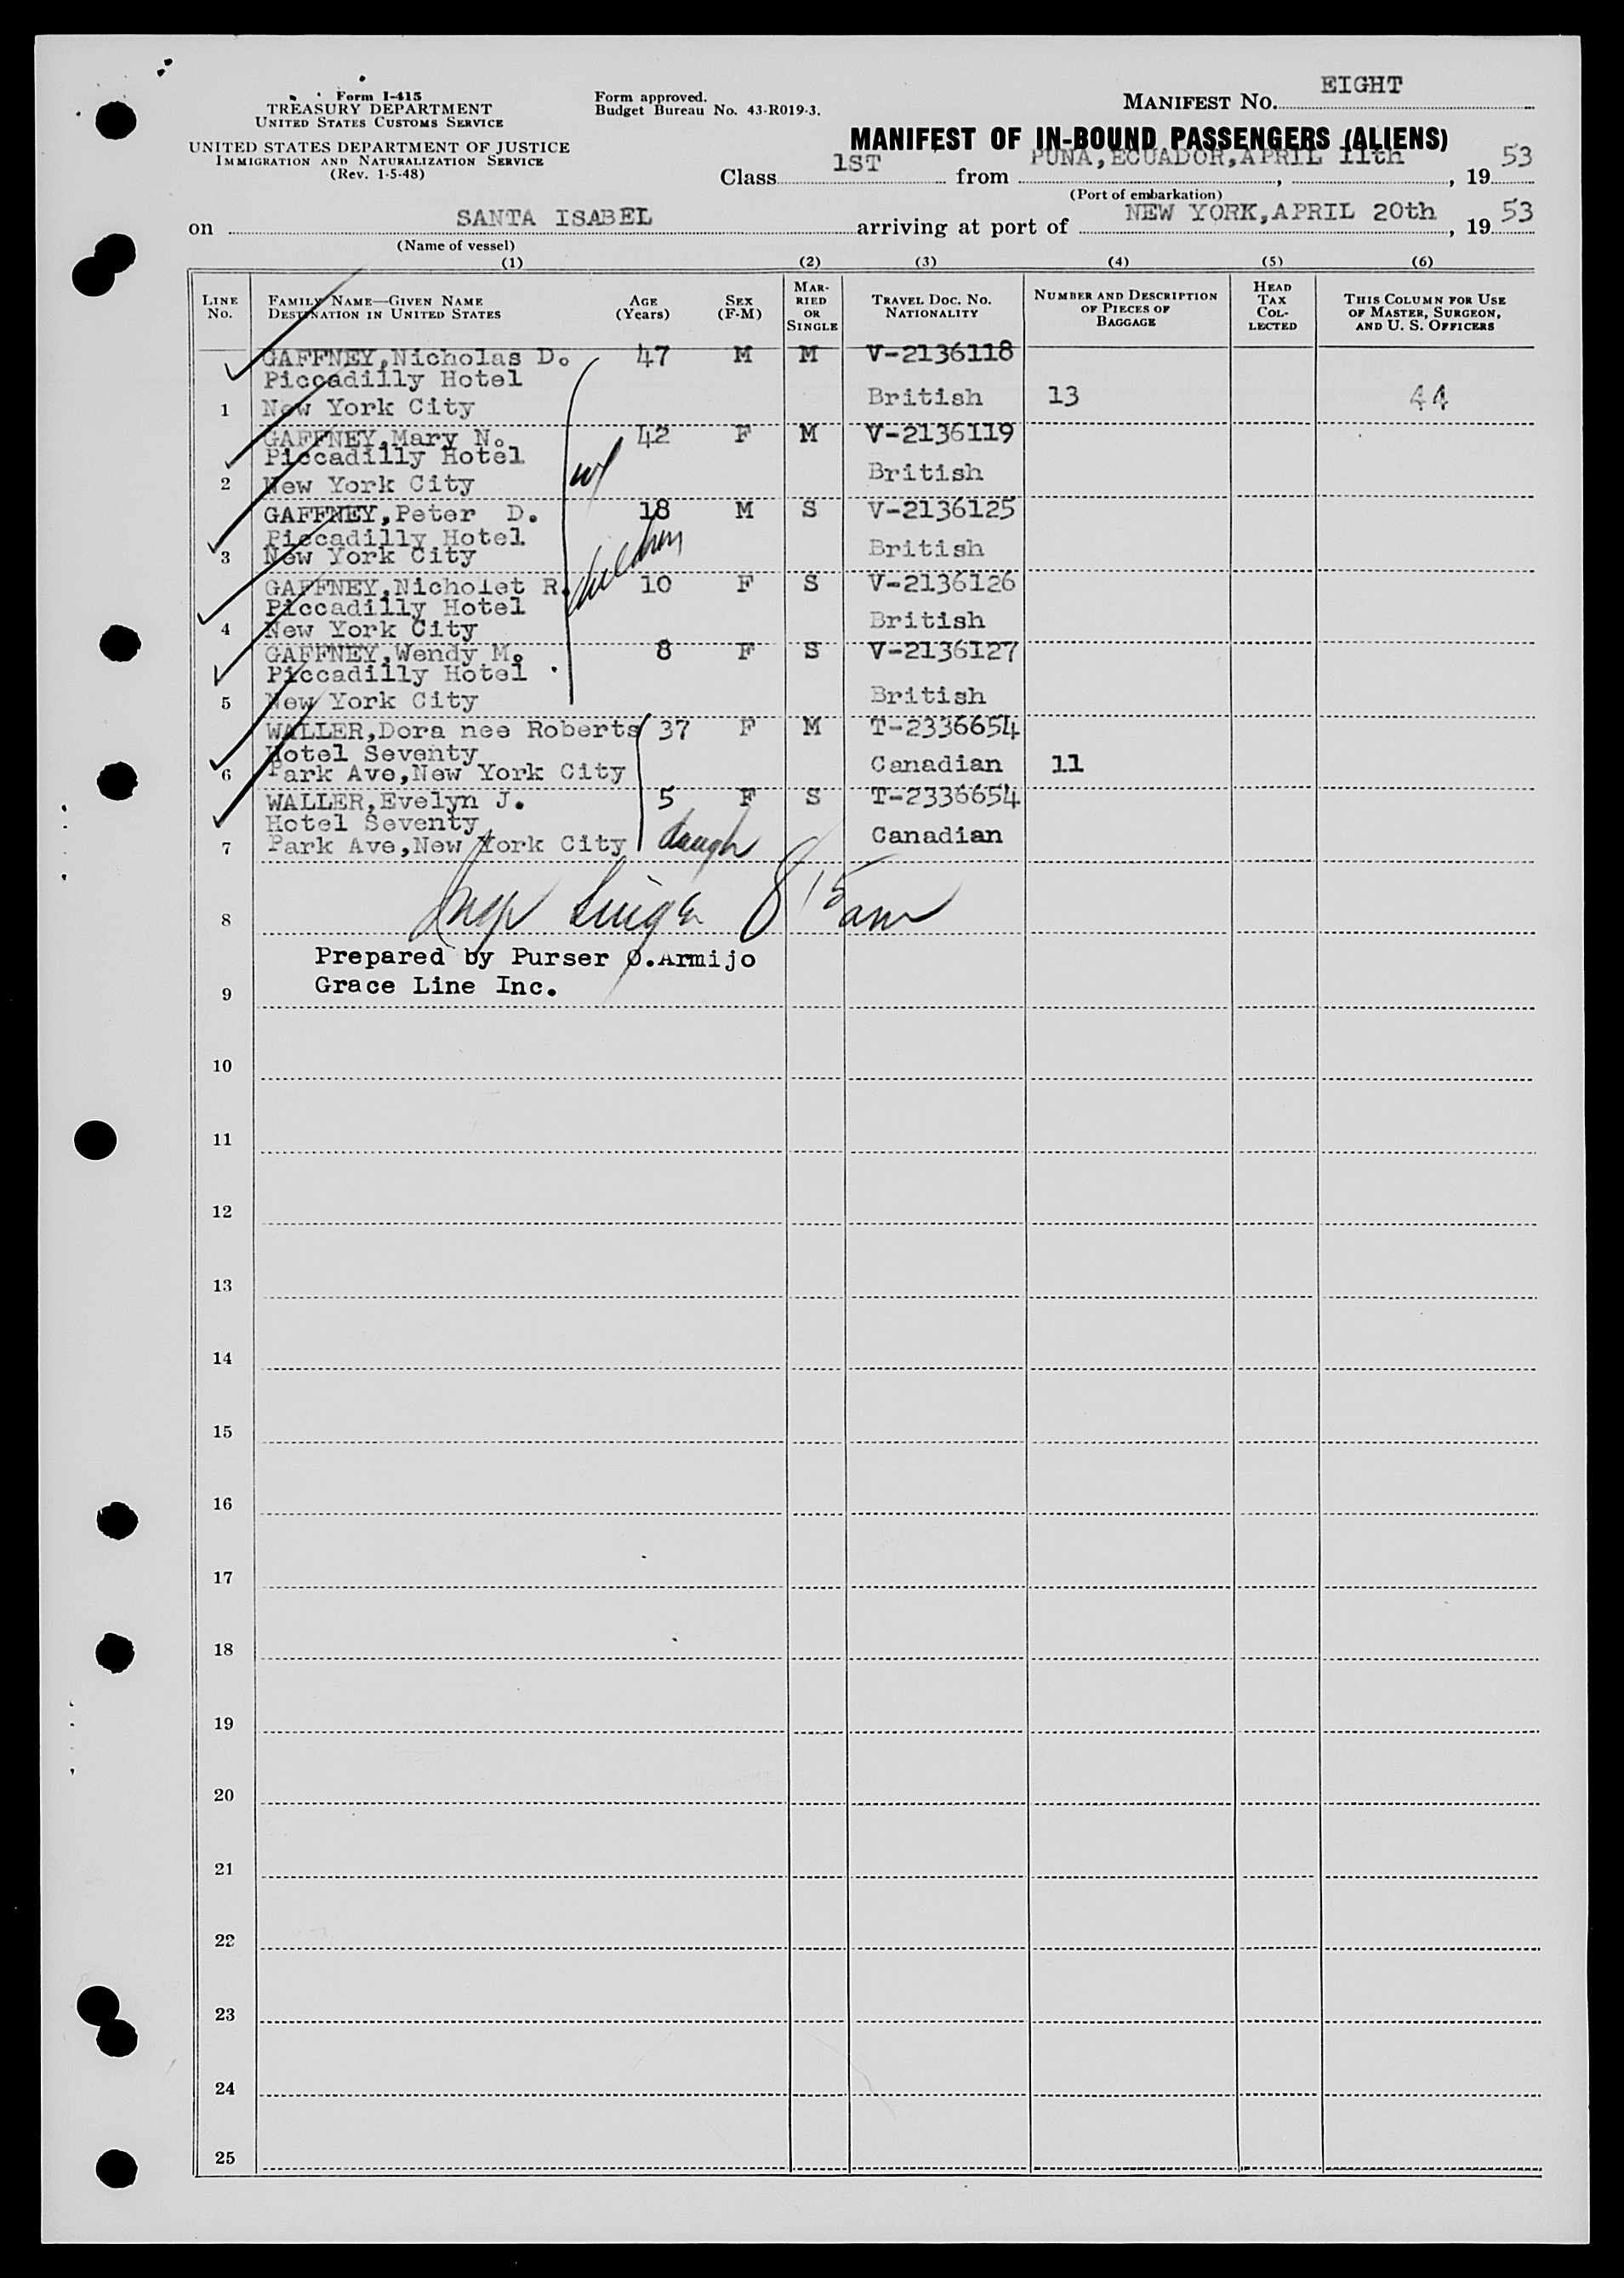 Form I-415
TREASURY DEPARTMENT
UNITED STATES CUSTOMS SERVICE
UNITED STATES DEPARTMENT OF JUSTICE
IMMIGRATION AND NATURALIZATION SERVICE
(Rev. 1-5-48)
Form approved.
Budget Bureau No. 43-R019-3.
MANIFEST No. EIGHT
MANIFEST OF IN-BOUND PASSENGERS (ALIENS)
Class 1ST from PUNA, ECUADOR, APRIL 11th, 19 53
(Port of embarkation)
on SANTA ISABEL arriving at port of NEW YORK, APRIL 20th, 19 53
(Name of vessel)
(1) (2) (3) (4) (5) (6)
LINE No. FAMILY NAME—GIVEN NAME DESTINATION IN UNITED STATES AGE (Years) SEX (F-M) MARRIED OR SINGLE TRAVEL DOC. NO. NATIONALITY NUMBER AND DESCRIPTION OF PIECES OF BAGGAGE HEAD TAX COLLECTED THIS COLUMN FOR USE OF MASTER, SURGEON, AND U. S. OFFICERS
GAFFNEY,Nicholas D. 47 M M V-2136118
Piccadilly Hotel
1 New York City British 13 44
GAFFNEY,Mary N. 42 F M V-2136119
Piccadilly Hotel
wf
2 New York City British
GAFFNEY,Peter D. 18 M S V-2136125
Piccadilly Hotel
3 New York City British
children
GAFFNEY,Nicholet R. 10 F S V-2136126
Piccadilly Hotel
4 New York City British
GAFFNEY,Wendy M. 8 F S V-2136127
Piccadilly Hotel
5 New York City British
WALLER,Dora nee Roberts 37 F M T-2336654
Hotel Seventy
6 Park Ave,New York City Canadian 11
WALLER,Evelyn J. 5 F S T-2336654
Hotel Seventy
7 Park Ave,New York City daugh Canadian
8 Insp 8 15 am
Prepared by Purser O.Armijo
9 Grace Line Inc.
10
11
12
13
14
15
16
17
18
19
20
21
22
23
24
25